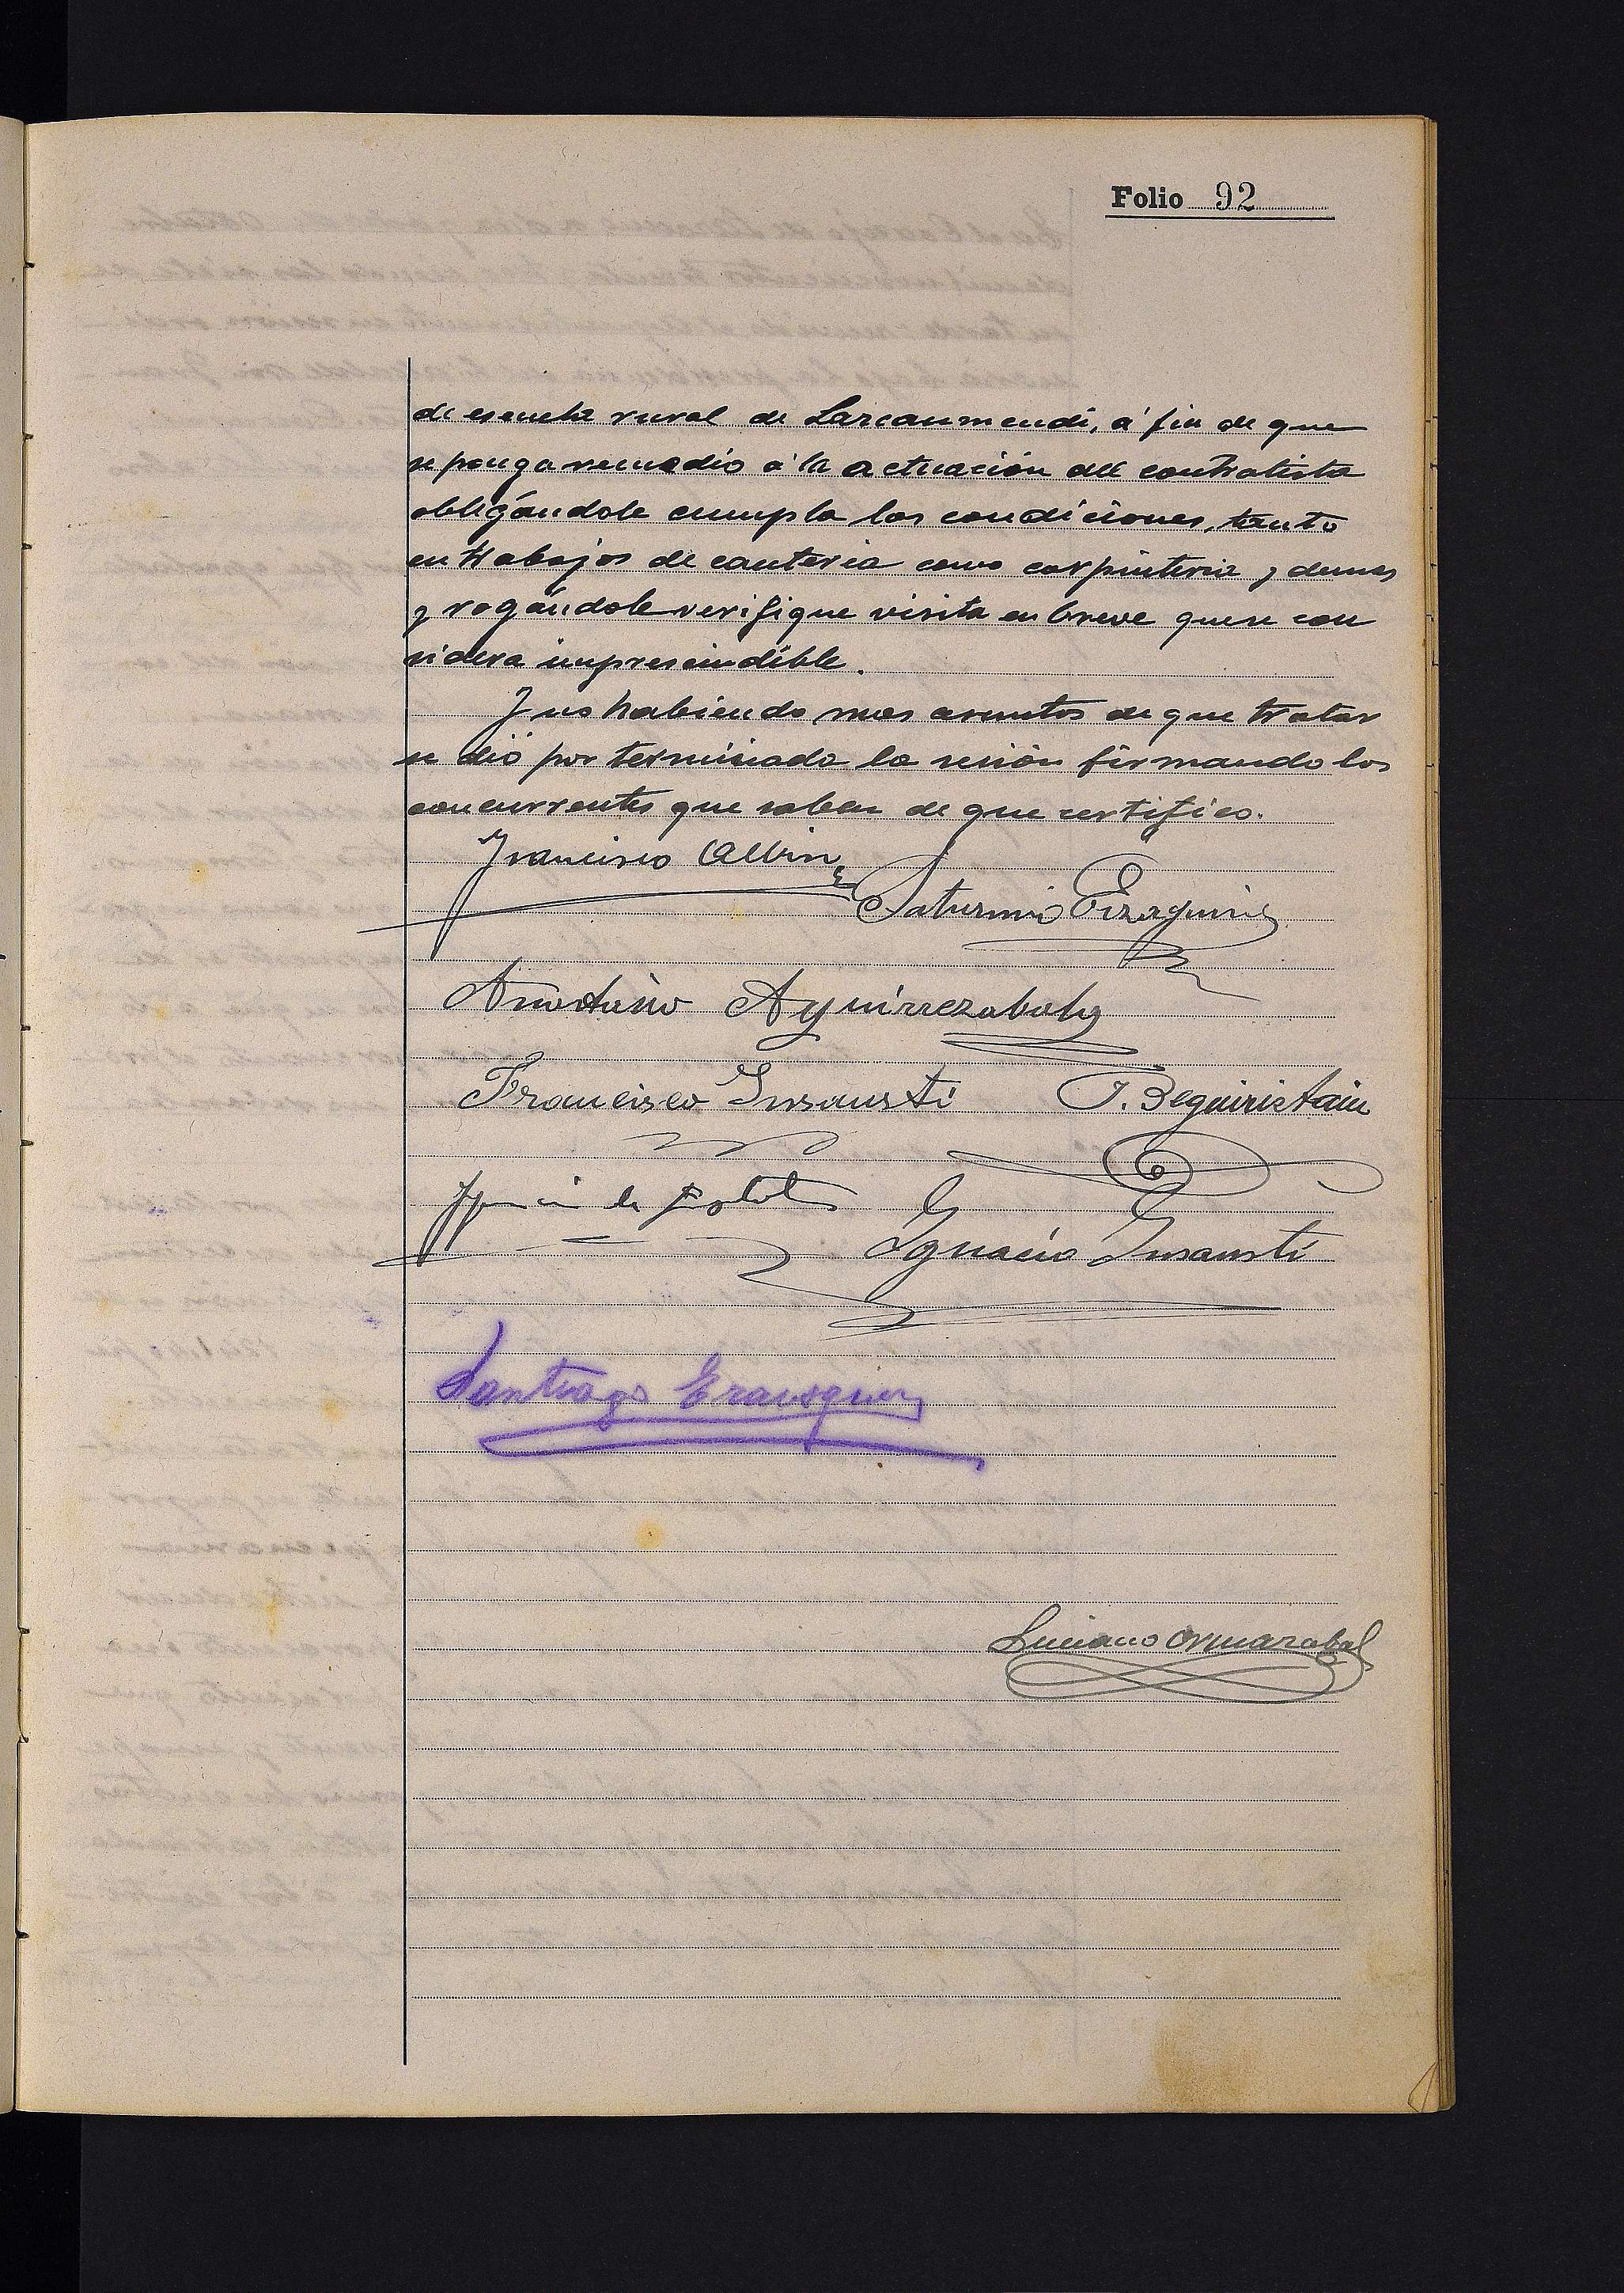 Folio 92
de escuela rural de Lazcaumendi, á fin de que
se ponga remedio á la actuación del contratista
obligándole cumpla las condiciones, tanto
en trabajos de canteria como carpinteria y demas
y rogándole verifique visita en breve que se con
sidera imprescindible.
Y no habiendo mas asuntos de que tratar
se dió por terminada la sesión firmando los
concurrentes que saben de que certifico.
Francisco Albin
Saturnino Eizaguirre
Aguirrezabala
Francisco Insausti J. Beguiristain
Ignacio de
Ignacio Insausti
Santiago Erausquin
Luciano Ormazabal